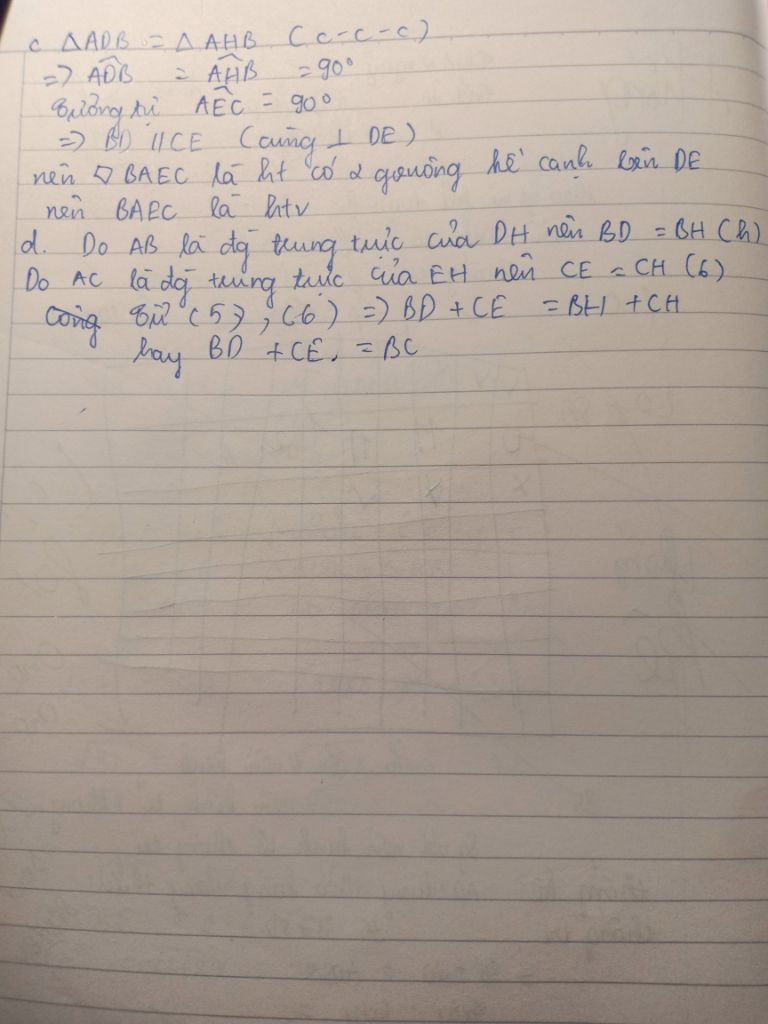 c △ADB = △AHB (c-c-c)
=> ADB = AHB = 90°
Tương tự AEC = 90°
=> BD // CE (cùng ⊥ DE)
nên ▱ BAEC là ht có 2 góc vuông kề cạnh bên DE
nên BAEC là htv
d. Do AB là đg trung trực của DH nên BD = BH (5)
Do AC là đg trung trực của EH nên CE = CH (6)
Từ (5), (6) => BD + CE = BH + CH
hay BD + CE = BC